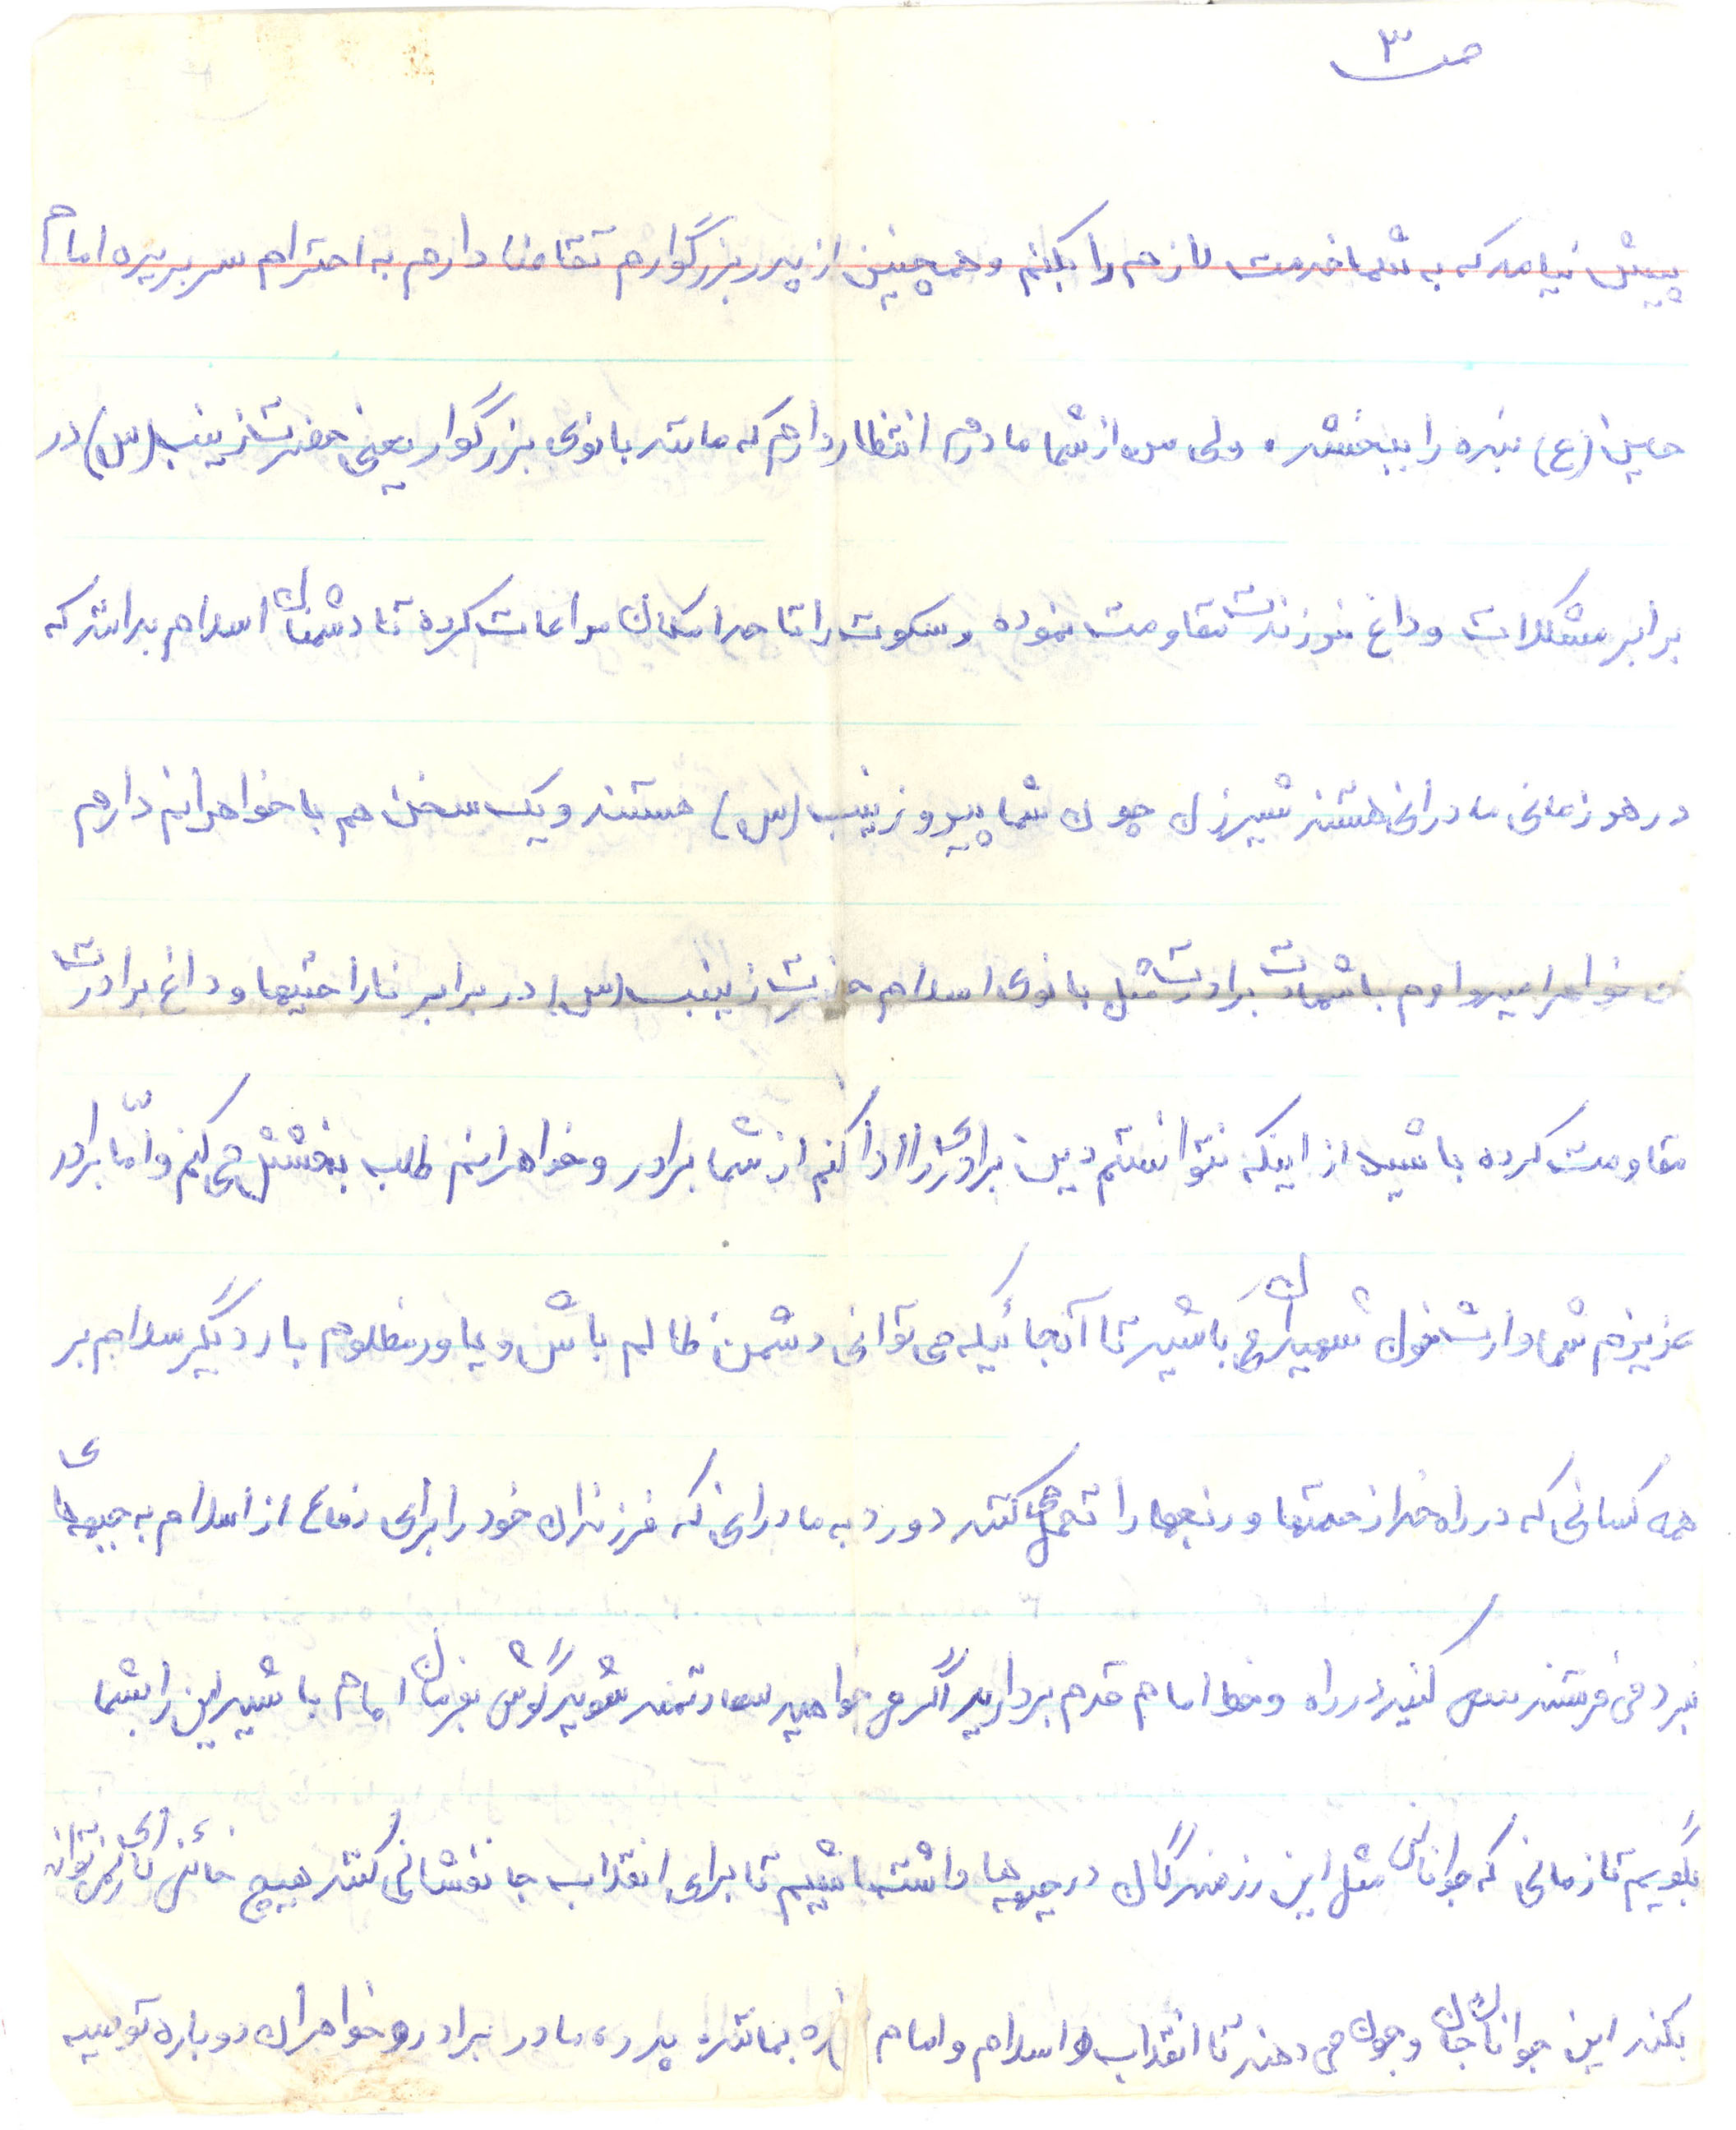 ص ۳
پیش نیامد که به شما خدمت لازم را بکنم و همچنین از پدر بزرگوارم تقاضا دارم به احترام سر بریده امام
حسین (ع) بنده را ببخشد. ولی من از شما مادرم انتظار دارم که مانند بانوی بزرگوار یعنی حضرت زینب (س) در
برابر مشکلات و داغ فرزندت مقاومت نموده و سکوت را تا حد امکان مراعات کرده تا دشمنان اسلام بدانند که
در هر زمانی مادرانی هستند شیرزن چون شما پیرو زینب (س) هستند و یک سخن هم با خواهرانم دارم
خواهر امیدوارم با شهادت برادرت مثل بانوی اسلام حضرت زینب (س) در برابر ناراحتیها و داغ برادرت
مقاومت کرده باشید از اینکه نتوانستم دین برادری را ادا کنم از شما برادر و خواهرانم طلب بخشش می کنم و امّا برادر
عزیزم شما وارث خون شهیدان باشید تا آنجائیکه می توانی دشمن ظالم باش و یاور مظلوم بار دیگر سلام بر
همه کسانی که در راه خدا زحمتها و رنجها را تحمل می کنند درود به مادرانی که فرزندان خود را برای دفاع از اسلام به جبهه های
نبرد می فرستند سعی کنید در راه و خط امام قدم بردارید اگر می خواهید سعادتمند شوید گوش بفرمان امام باشید این را بشما
بگویم تا زمانی که جوانانی مثل این رزمندگان در جبهه ها داشته باشیم تا برای انقلاب جانفشانی کنند هیچ خائنی کاری نمی تواند
بکند این جوانان جان و خون می دهند تا انقلاب و اسلام و امام زنده بمانند پدر و مادر برادر و خواهران دوباره توصیه